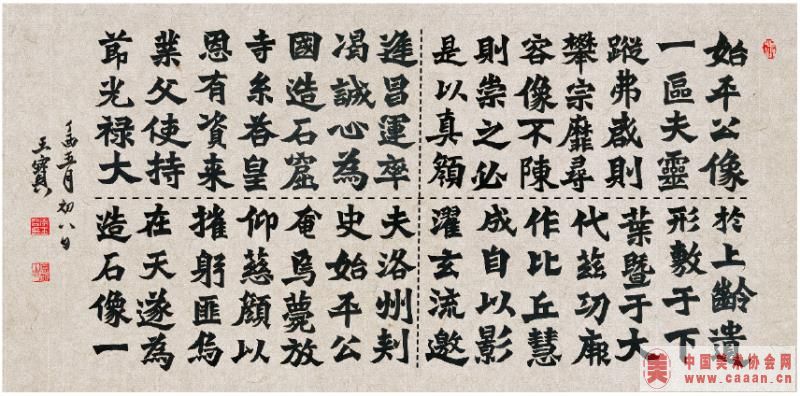 始平公像
一區夫靈
蹤弗啟則
攀宗靡尋
容像不陳
則崇之必
是以真顏
於上齡遺
形敷于下
葉暨于大
代茲功厥
作比丘慧
成自以影
濯玄流邀
進昌運率
渴誠心為
國造石窟
寺系答皇
恩有資来
業父使持
節光禄大
夫洛州刾
史始平公
奄焉薨放
仰慈顏以
摧躬匪烏
在天遂為
造石像一
丁酉五月初八日
王寶
美
中国美术协会网
www.caaan.cn